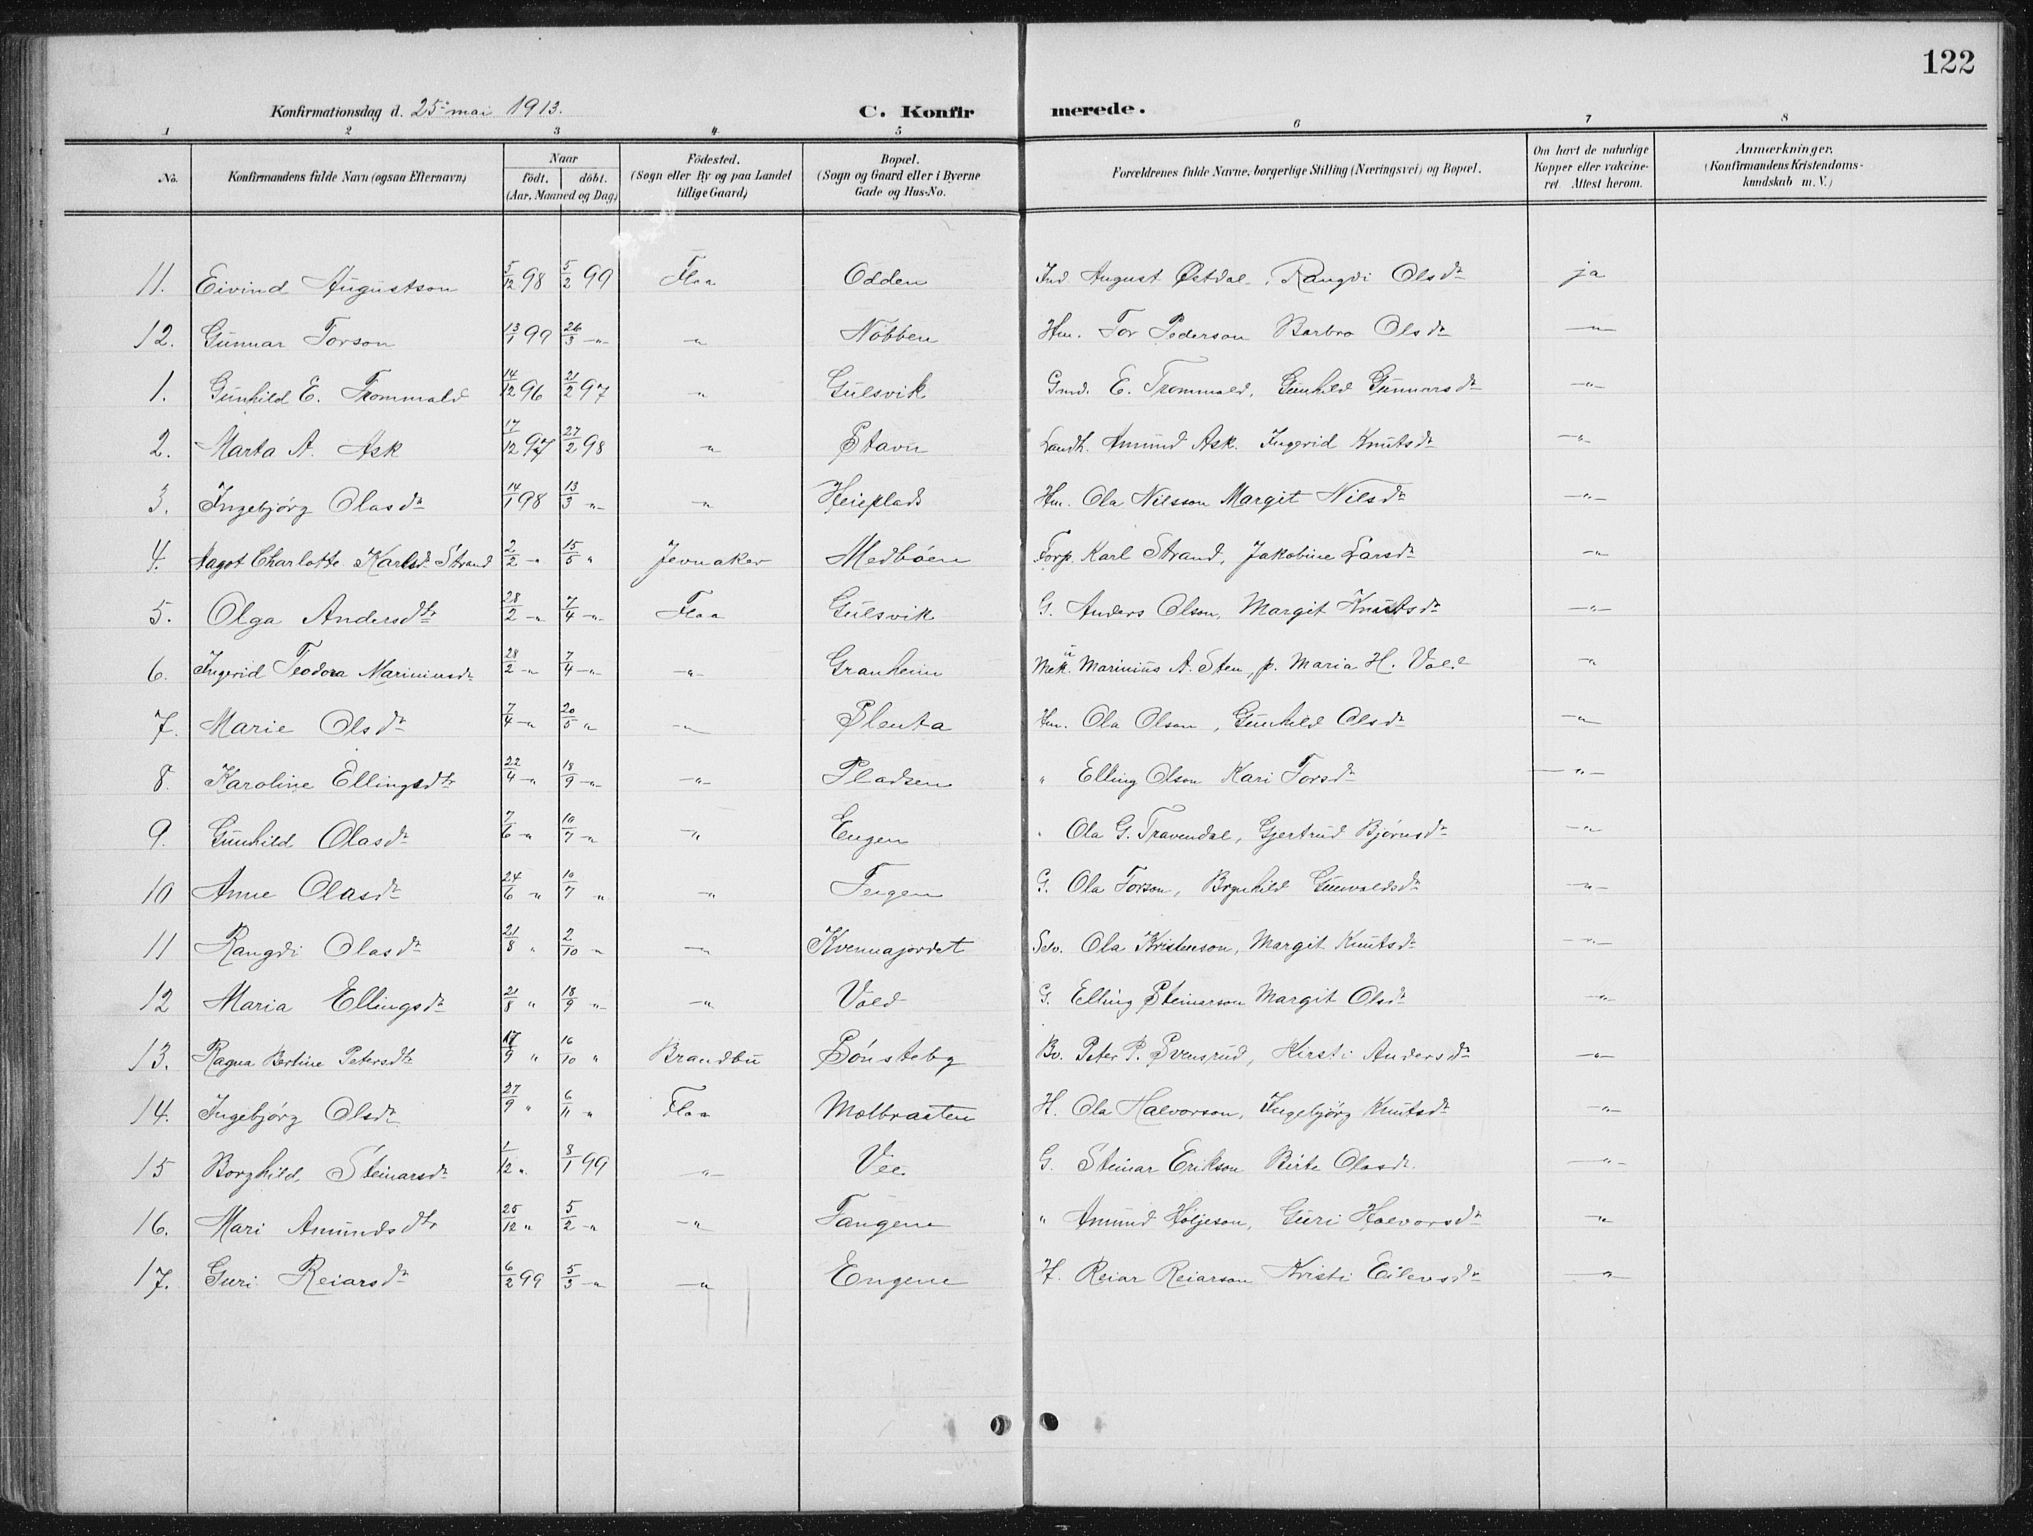 122
Konfirmationsdag d. 25 mai 1913. C. Konfirmerede.
1 2 3 4 5 6 7 8
No. Konfirmandens fulde Navn (ogsaa Efternavn) Naar født. døbt. (Aar, Maaned og Dag) Fødested. (Sogn eller By og paa Landet tillige Gaard) Bopæl. (Sogn og Gaard eller i Byerne Gade og Hus-No. Forældrenes fulde Navne, borgerlige Stilling (Næringsvei) og Bopæl. Om havt de naturlige Kopper eller vakcineret. Attest herom. Anmærkninger. (Konfirmandens Kristendomskundskab m. V.)
11. Eivind Augustson 5/12 98 5/2 99 Flaa Odden Ind August Østdal, Rangdi Olsdr ja
12. Gunnar Torson 13/1 99 26/3 -"- -"- Nobben Hm. Tor Pederson Barbro Olsdr -"-
1. Gunhild E. Trommald 14/12 96 21/2 97 -"- Gulsvik Grmd. E. Trommald, Gunhild Gunnarsdr -"-
2. Marta A. Ask 17/12 97 27/2 98 -"- Stavn Landh. Amund Ask. Ingerid Knutsdr -"-
3. Ingebjørg Olasdr 14/1 98 13/3 -"- -"- Heieplads Hm. Ola Nilsson Margit Nilsdr -"-
4. Aagot Charlotte Karlsd. Strand 2/2 -"- 15/5 " Jevnaker Medbøen Forp. Karl Strand, Jakobine Larsdr -"-
5. Olga Andersdtr 28/2 -"- 7/4 -"- Flaa Gulsvik G. Anders Olson, Margit Knutsdr -"-
6. Ingerid Teodora Mariniusdr 28/2 -"- 7/4 -"- -"- Granheim Mek. Marinius A. Sten, p. Maria H. Vold -"-
7. Marie Olsdr 7/4 -"- 20/5 " -"- Slenta Hm. Ola Olson, Gunhild Olsdr -"-
8. Karoline Ellingsdtr 22/4 -"- 18/9 -"- -"- Pladsen " Elling Olson Kari Torsdr -"-
9. Gunhild Olasdr 7/6 -"- 10/7 -"- -"- Engen " Ola G. Travendal, Gjertrud Bjørnsdr -"-
10 Anne Olasdr 24/6 " 10/7 " -"- Teigen G. Ola Torson, Brynhild Gunvaldsdr -"-
11 Rangdi Olasdr 21/8 " 2/10 -"- -"- Kvennajordet Selv. Ola Kristenson, Margit Knutsdr -"-
12 Maria Ellingsdr 21/8 " 18/9 -"- -"- Vold G. Elling Steinarson Margit Olsdr -"-
13. Ragna Bertine Petersdtr 17/9 " 16/10 " Brandbu Sønsteby Bv. Peter P. Svensrud, Kirsti Andersdr -"-
14. Ingebjørg Olsdr 27/9 " 6/11 " Flaa Molbraaten H. Ola Halvorson, Ingebjørg Knutsdr -"-
15 Borghild Steinarsdr 1/12 " 8/1 99 -"- Vee. G. Steinar Erikson Birte Olasdr. -"-
16. Mari Amundsdtr 25/12 " 5/2 -"- -"- Tangene " Amund Høljeson, Guri Halvorsdr -"-
17. Guri Reiarsdr 6/2 99 5/3 -"- -"- Engene H. Reiar Reiarson Kristi Eilevsdr -"-